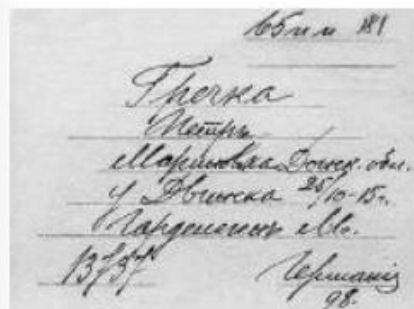 65 п п 181
Гречка
Петръ
Марьинка Донск. обл.
у Двинска 25/10-15г.
Гарделеген
13737
Германія
98.